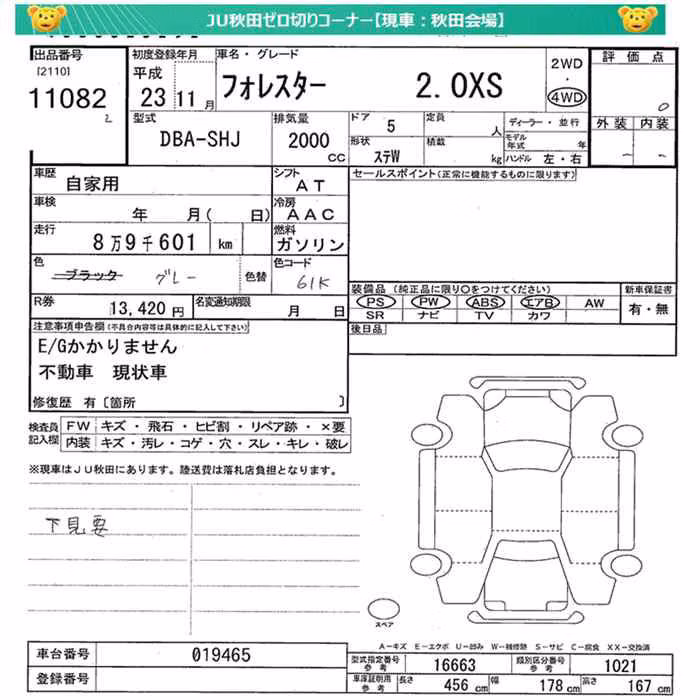 JU秋田ゼロ切りコーナー【現車：秋田会場】
出品番号
[2110]
11082
2
初度登録年月
平成
23 11月
車名・グレード
フォレスター 2.0XS
2WD
・
4WD
評価点
0
外装 内装
型式
DBA-SHJ
排気量
2000
CC
ドア 5
定員 人
ディーラー・並行
モデル年式 年
形状 ステW
積載 kg
ハンドル 左・右
車歴 自家用
シフト AT
セールスポイント(正常に機能するものに限ります)
車検 年 月( 日)
冷房 AAC
走行 8万9千601 km
燃料 ガソリン
色 ブラック グレー 色替
色コード 61K
装備品 (純正品に限り○をつけてください)
新車保証書
PS PW ABS エアB AW
有・無
SR ナビ TV カワ
R券 13,420円
名変通知期限 月 日
後日品
注意事項申告欄(不具合内容等は具体的に記入して下さい)
E/Gかかりません
不動車 現状車
修復歴 有〔箇所 〕
検査員記入欄
FW キズ・飛石・ヒビ割・リペア跡・×要
内装 キズ・汚レ・コゲ・穴・スレ・キレ・破レ
※現車はJU秋田にあります。陸送費は落札店負担となります。
下見要
スペア
A-キズ E-エクボ U-凹み W-補修跡 S-サビ C-腐食 XX-交換済
車台番号 019465
登録番号
型式指定番号参考 16663
類別区分番号参考 1021
車庫証明用参考
長さ 456 cm 幅 178 cm 高さ 167 cm